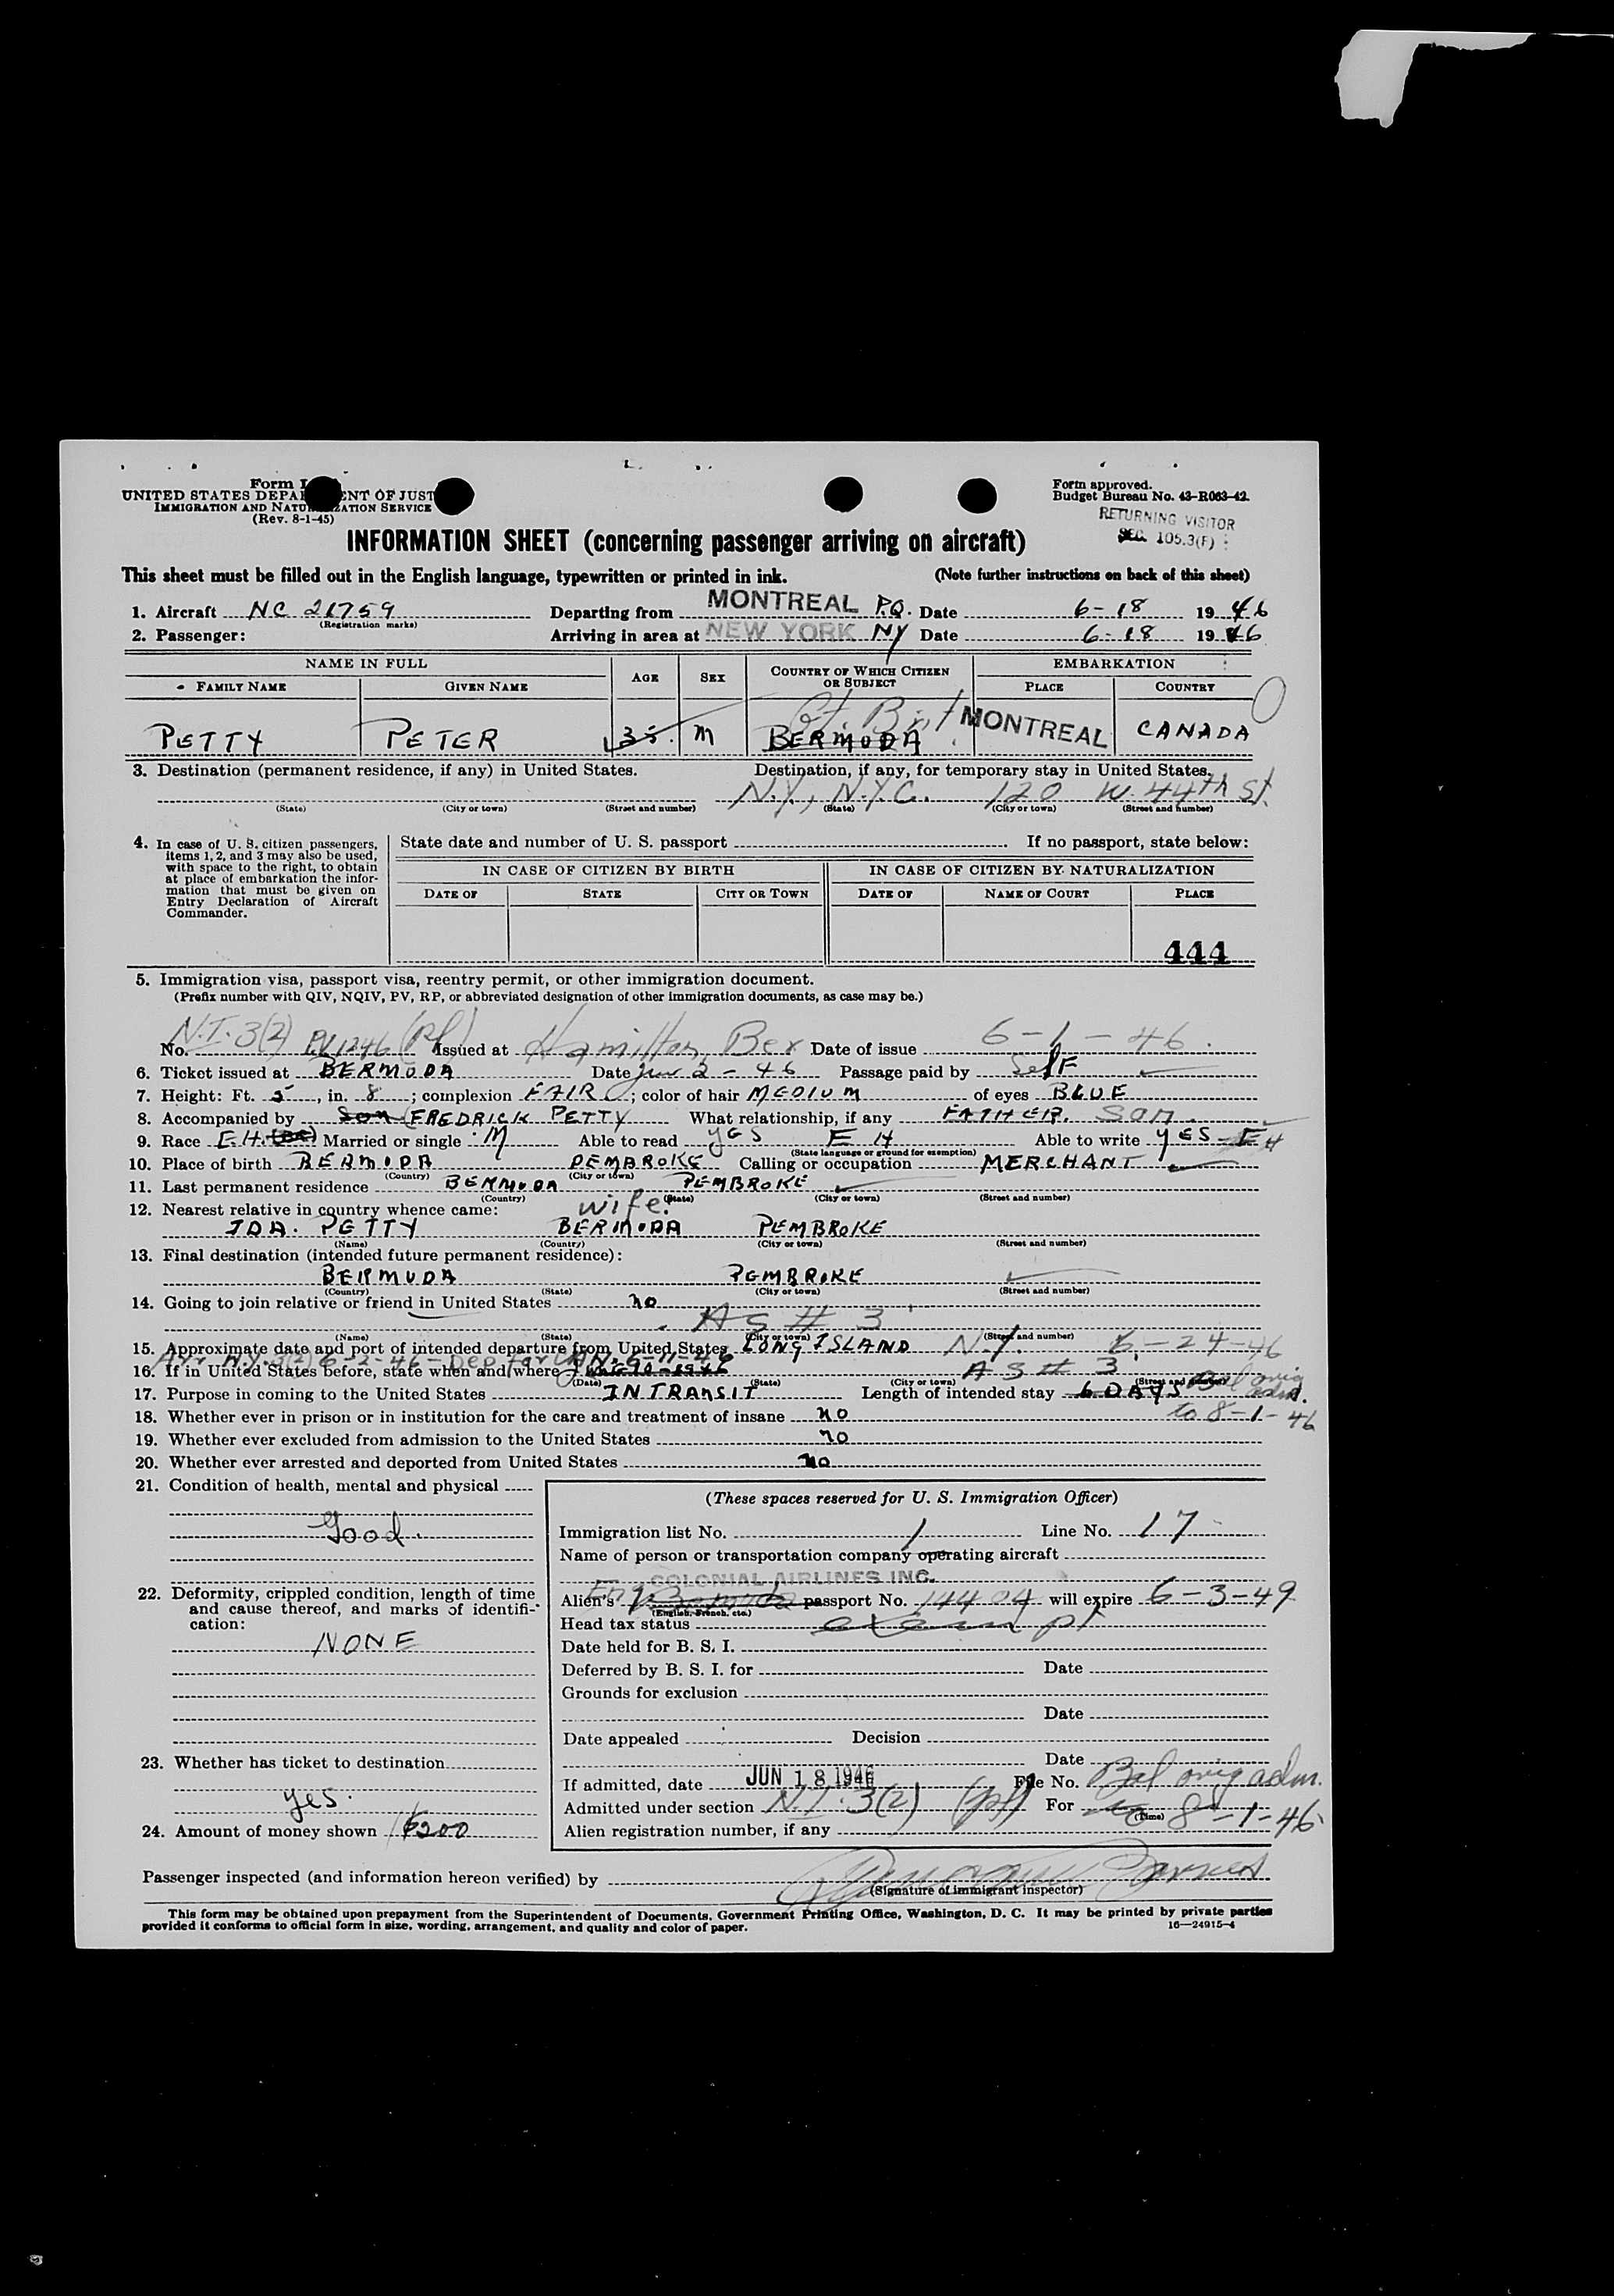 Form I
UNITED STATES DEPA ENT OF JUST
IMMIGRATION AND NATU ZATION SERVICE
(Rev. 8-1-45)
Form approved.
Budget Bureau No. 43-R063-42.
RETURNING VISITOR
SEC. 105.3(F)
INFORMATION SHEET (concerning passenger arriving on aircraft)
This sheet must be filled out in the English language, typewritten or printed in ink. (Note further instructions on back of this sheet)
1. Aircraft NC 21759 Departing from MONTREAL P.Q. Date 6-18 1946
(Registration marks)
2. Passenger: Arriving in area at NEW YORK NY Date 6-18 1946
NAME IN FULL AGE SEX COUNTRY OF WHICH CITIZEN OR SUBJECT EMBARKATION
FAMILY NAME GIVEN NAME PLACE COUNTRY
Gt. Brit.
PETTY PETER 35 M BERMUDA MONTREAL CANADA
3. Destination (permanent residence, if any) in United States. Destination, if any, for temporary stay in United States.
N.Y., N.Y.C. 120 W. 44th St.
(State) (City or town) (Street and number) (State) (City or town) (Street and number)
4. In case of U. S. citizen passengers, items 1, 2, and 3 may also be used, with space to the right, to obtain at place of embarkation the information that must be given on Entry Declaration of Aircraft Commander.
State date and number of U. S. passport If no passport, state below:
IN CASE OF CITIZEN BY BIRTH IN CASE OF CITIZEN BY NATURALIZATION
DATE OF STATE CITY OR TOWN DATE OF NAME OF COURT PLACE
444
5. Immigration visa, passport visa, reentry permit, or other immigration document.
(Prefix number with QIV, NQIV, PV, RP, or abbreviated designation of other immigration documents, as case may be.)
N.I. 3(2)
No. PV 1246 (pf) Issued at Hamilton, Ber Date of issue 6-1-46.
6. Ticket issued at BERMUDA Date Jun 2-46 Passage paid by Self
7. Height: Ft. 5, in. 8; complexion FAIR; color of hair MEDIUM of eyes BLUE
8. Accompanied by Son FREDRICK PETTY What relationship, if any FATHER. Son.
9. Race E.H. Married or single M Able to read YES E H Able to write YES EH
(State language or ground for exemption)
10. Place of birth BERMUDA PEMBROKE Calling or occupation MERCHANT
(Country) (City or town)
11. Last permanent residence BERMUDA PEMBROKE
(Country) (State) (City or town) (Street and number)
12. Nearest relative in country whence came: wife.
IDA. PETTY BERMUDA PEMBROKE
(Name) (Country) (City or town) (Street and number)
13. Final destination (intended future permanent residence):
BERMUDA PEMBROKE
(Country) (State) (City or town) (Street and number)
14. Going to join relative or friend in United States no
AS # 3
(Name) (State) (City or town) (Street and number)
15. Approximate date and port of intended departure from United States LONG ISLAND N.Y. 6-24-46
Arr. N.Y. 3(2) 6-2-46 - Dep for CAN. 6-11-46
16. If in United States before, state when and where AS # 3
(Date) (State) (City or town) (Street and number)
17. Purpose in coming to the United States INTRANSIT Length of intended stay 6 DAYS Bal orig adm.
to 8-1-46
18. Whether ever in prison or in institution for the care and treatment of insane no
19. Whether ever excluded from admission to the United States no
20. Whether ever arrested and deported from United States no
21. Condition of health, mental and physical
Good.
22. Deformity, crippled condition, length of time and cause thereof, and marks of identification:
NONE
23. Whether has ticket to destination
yes.
24. Amount of money shown $200
(These spaces reserved for U. S. Immigration Officer)
Immigration list No. 1 Line No. 17
Name of person or transportation company operating aircraft
COLONIAL AIRLINES INC.
Alien's Eng Bermuda passport No. 14404 will expire 6-3-49
(English, French, etc.)
Head tax status pf
Date held for B. S. I.
Deferred by B. S. I. for Date
Grounds for exclusion
Date
Date appealed Decision
Date
If admitted, date JUN 18 1946 File No. Bal orig adm.
Admitted under section N.I. 3(2) (pf) For to 8-1-46
(Time)
Alien registration number, if any
Passenger inspected (and information hereon verified) by
(Signature of immigrant inspector)
This form may be obtained upon prepayment from the Superintendent of Documents, Government Printing Office, Washington, D. C. It may be printed by private parties
provided it conforms to official form in size, wording, arrangement, and quality and color of paper. 16—24915-4